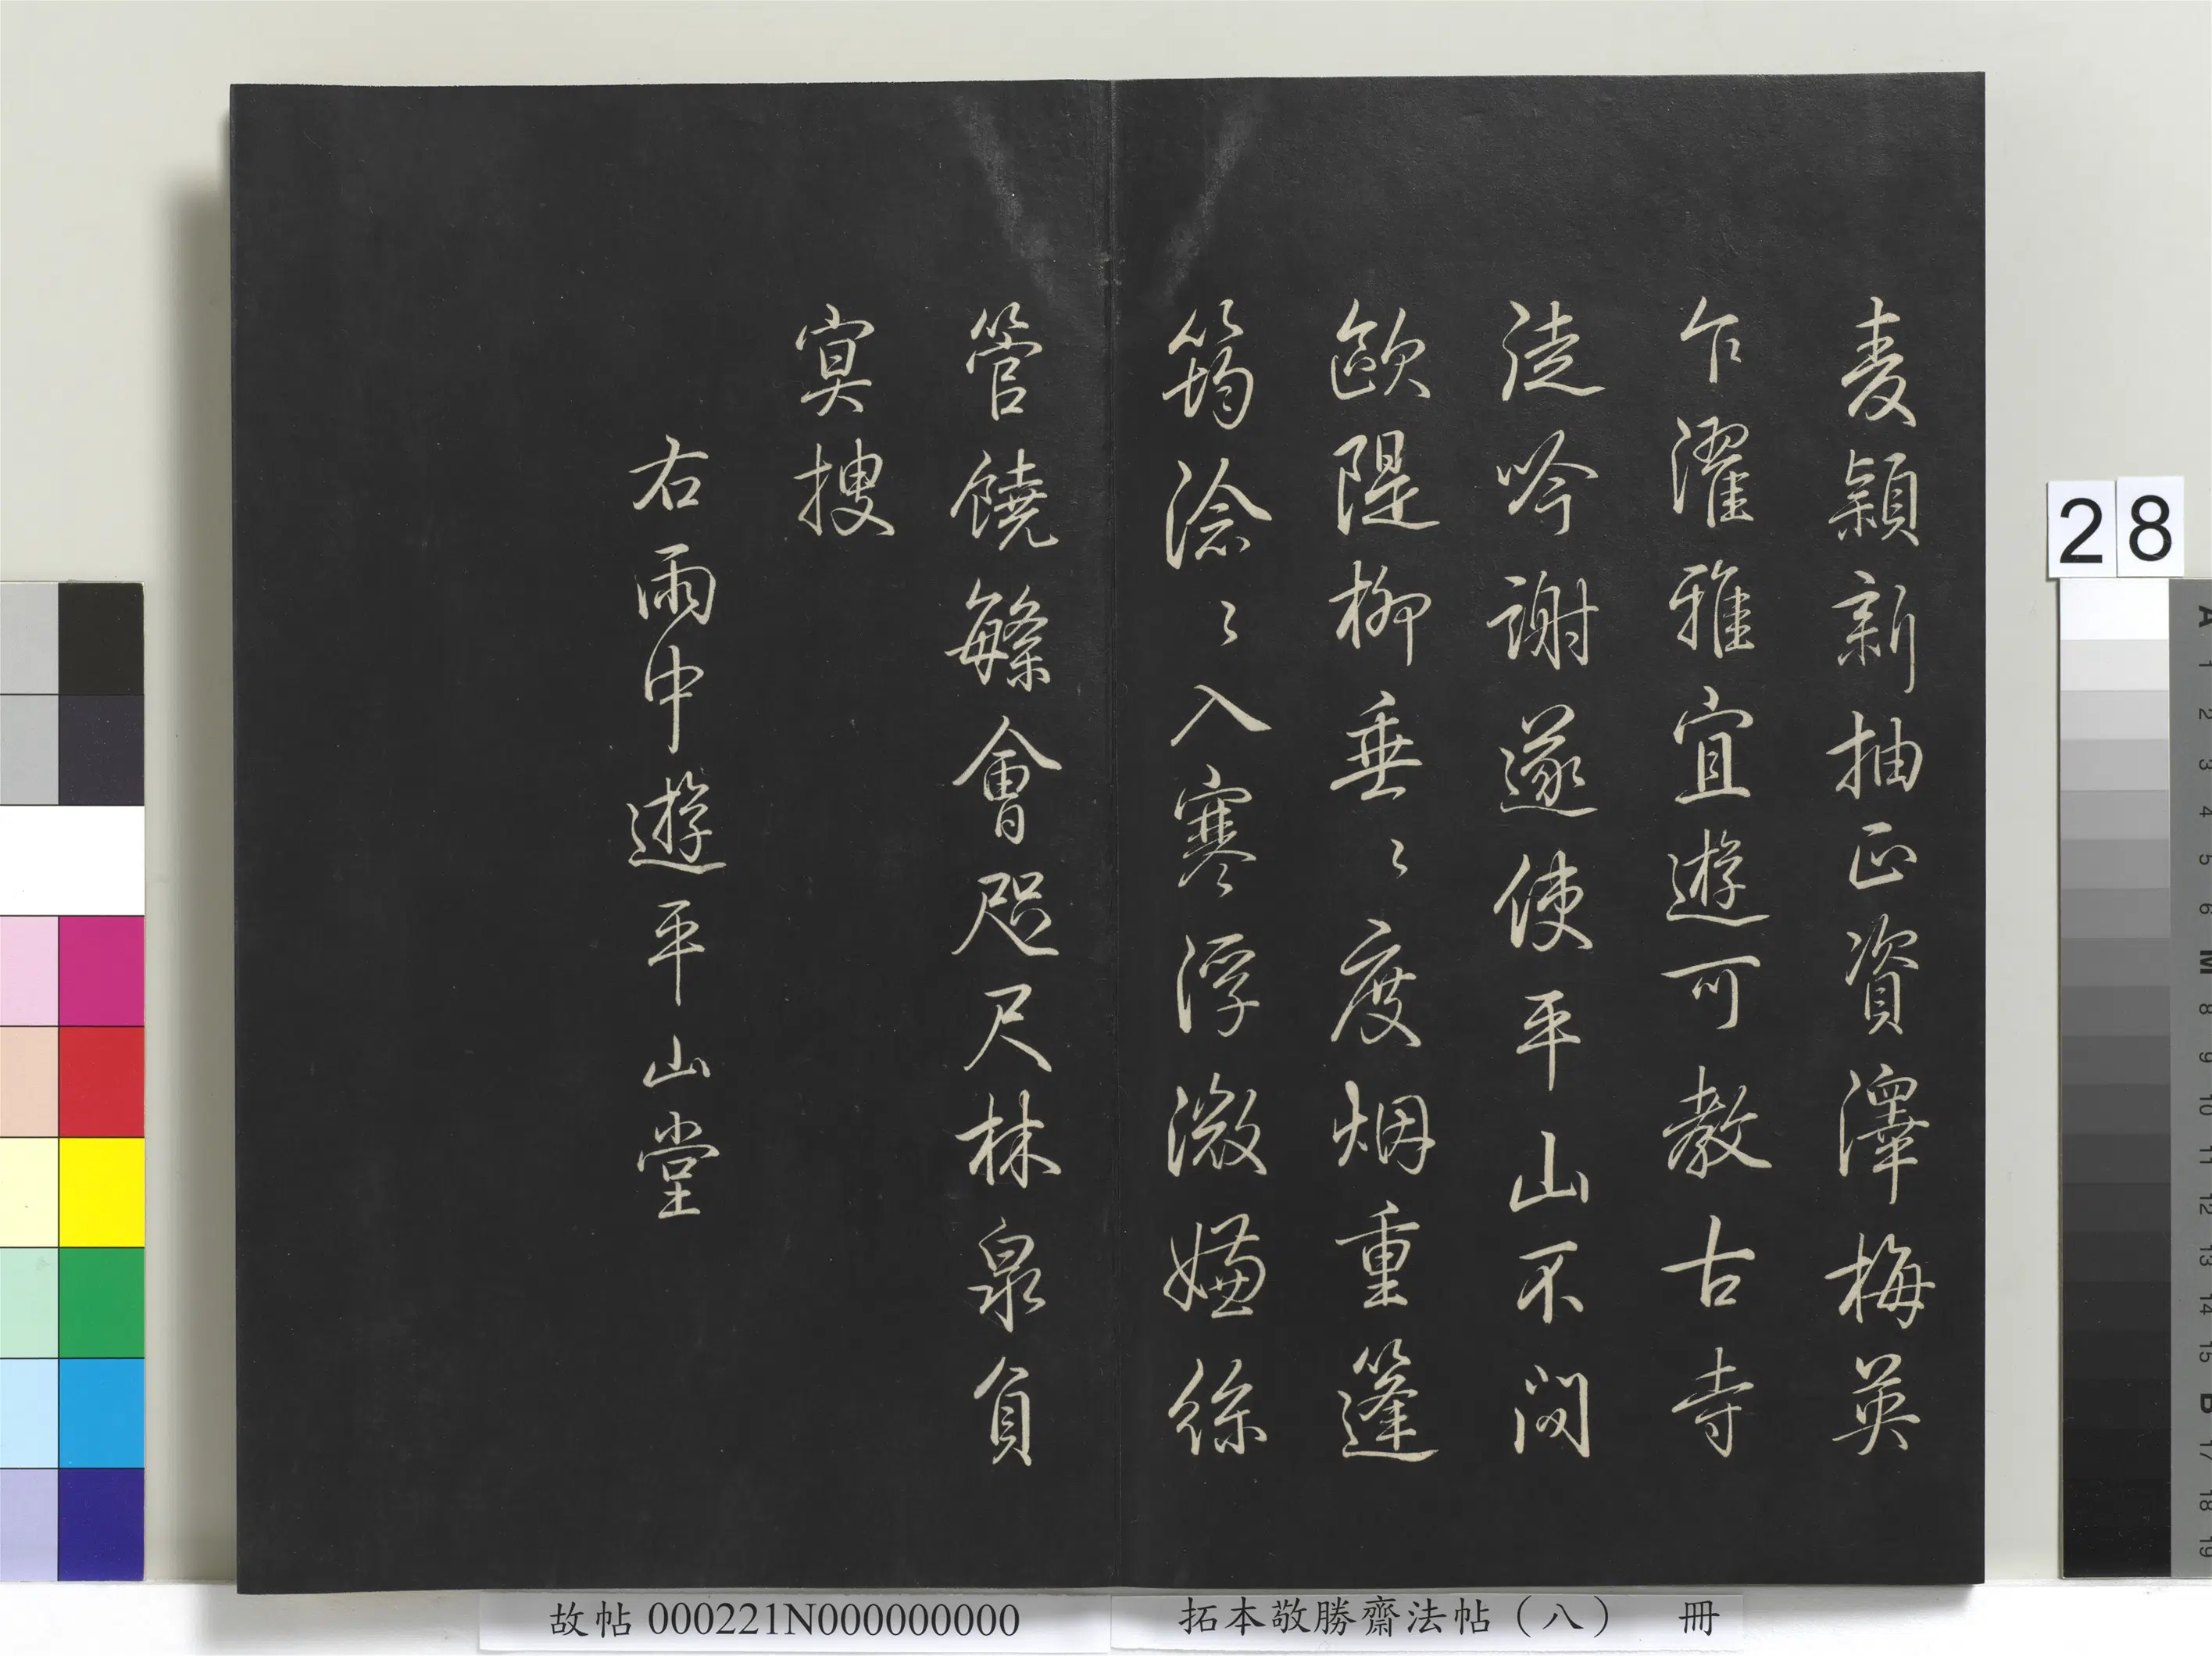 麦穎新抽正資澤梅英
乍濯雅宜遊可教古寺
徒吟謝遂使平山不閟
歐隄柳垂〻度烟重篷
筠淰〻入寒浮激嫌絲
管饒繁會咫尺林泉負
㝠搜
右雨中遊平山堂
28
故帖 000221N000000000
拓本敬勝齋法帖（八） 冊
A 1 2 3 4 5 6 M 8 9 10 11 12 13 14 15 B 17 18 19